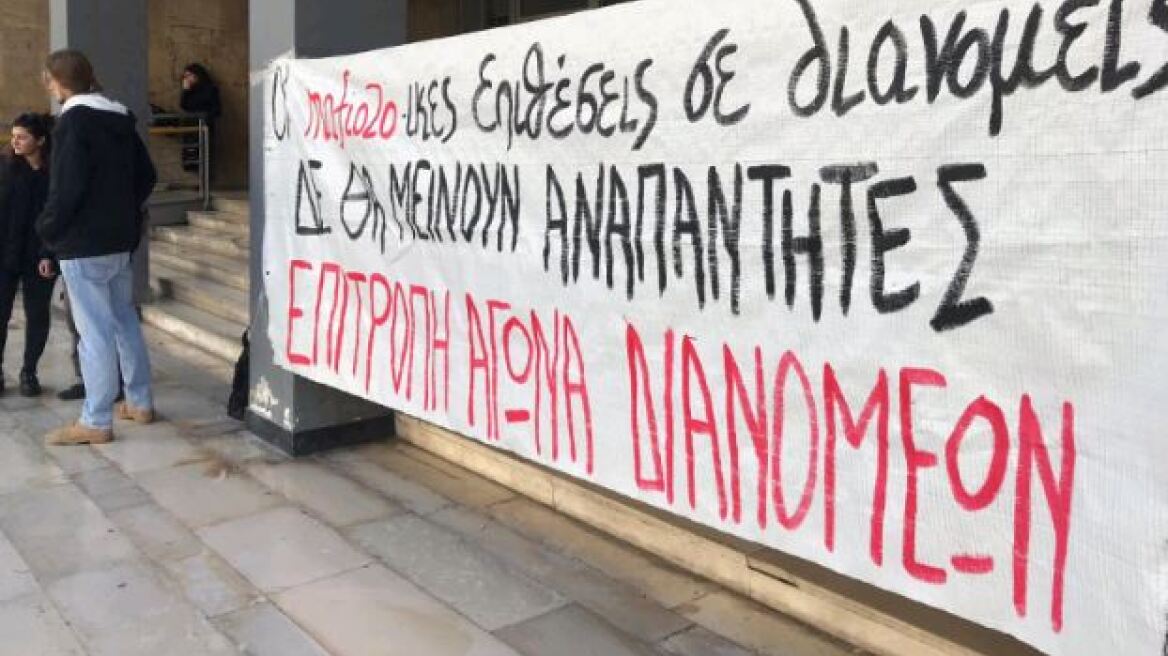 Οι μαφιοζο-ικες επιθέσεις σε διανομείς
ΔΕ ΘΑ ΜΕΙΝΟΥΝ ΑΝΑΠΑΝΤΗΤΕΣ
ΕΠΙΤΡΟΠΗ ΑΓΩΝΑ ΔΙΑΝΟΜΕΩΝ